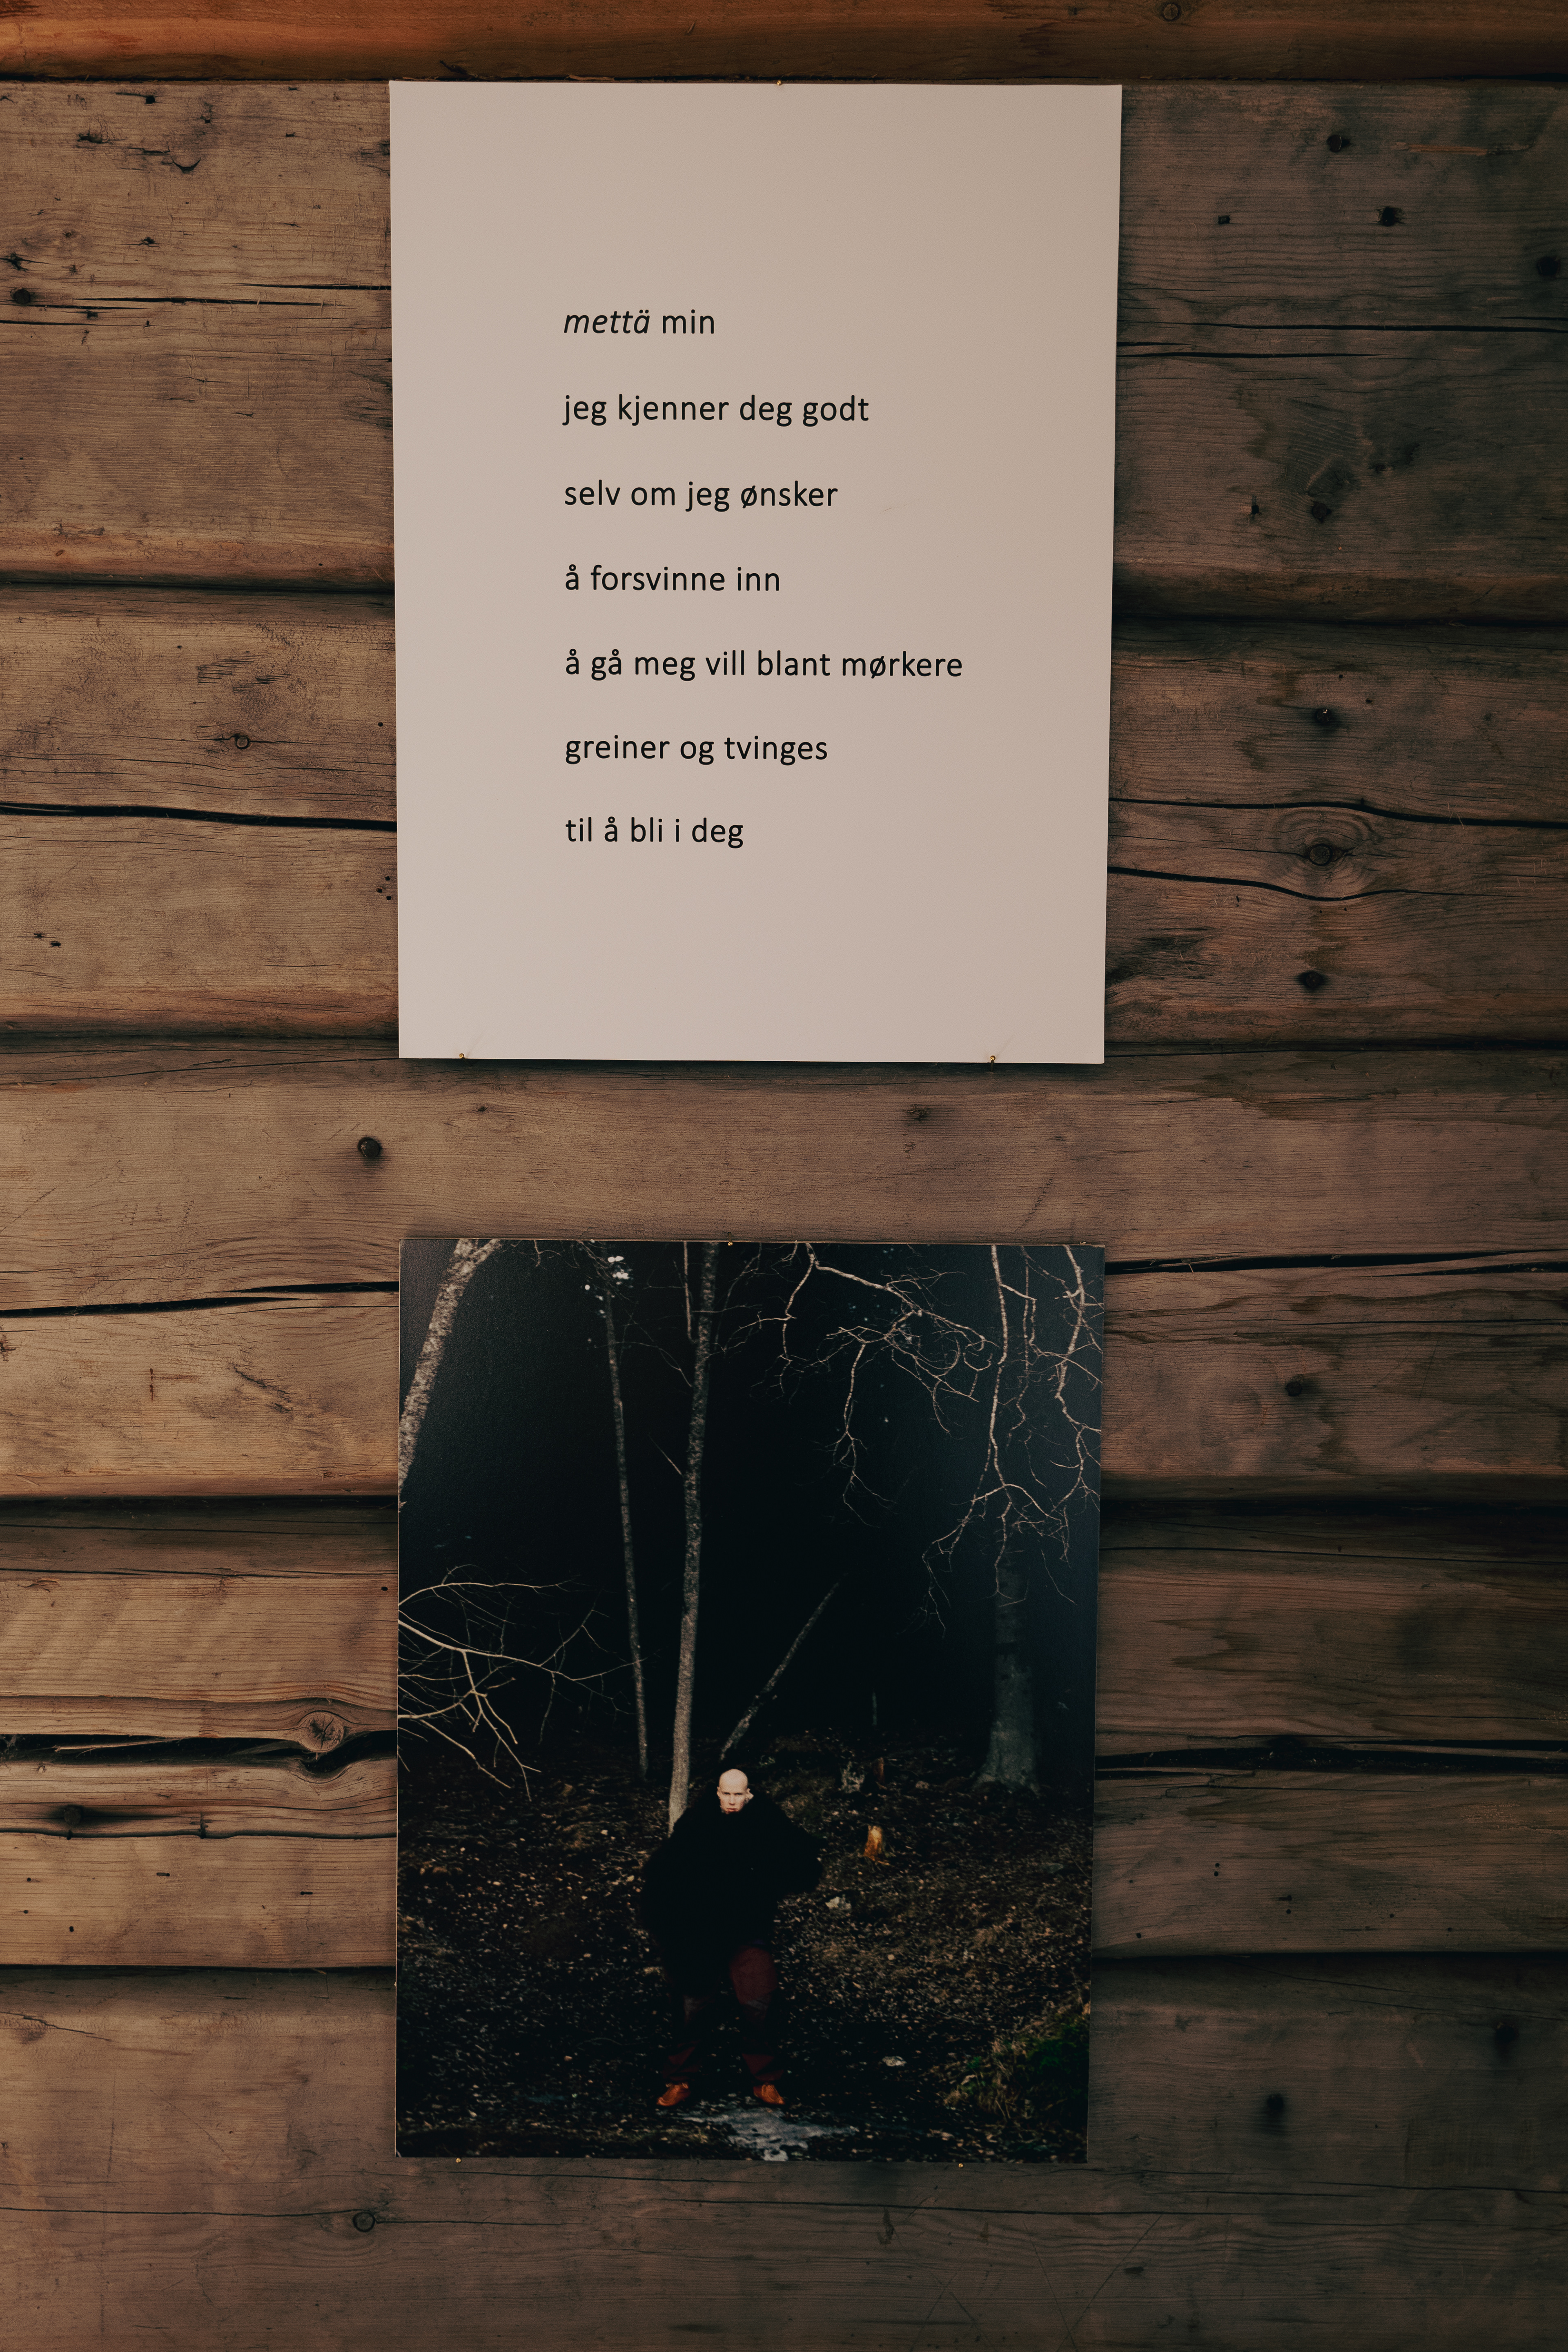 mettä min
jeg kjenner deg godt
selv om jeg ønsker
å forsvinne inn
å gå meg vill blant mørkere
greiner og tvinges
til å bli i deg